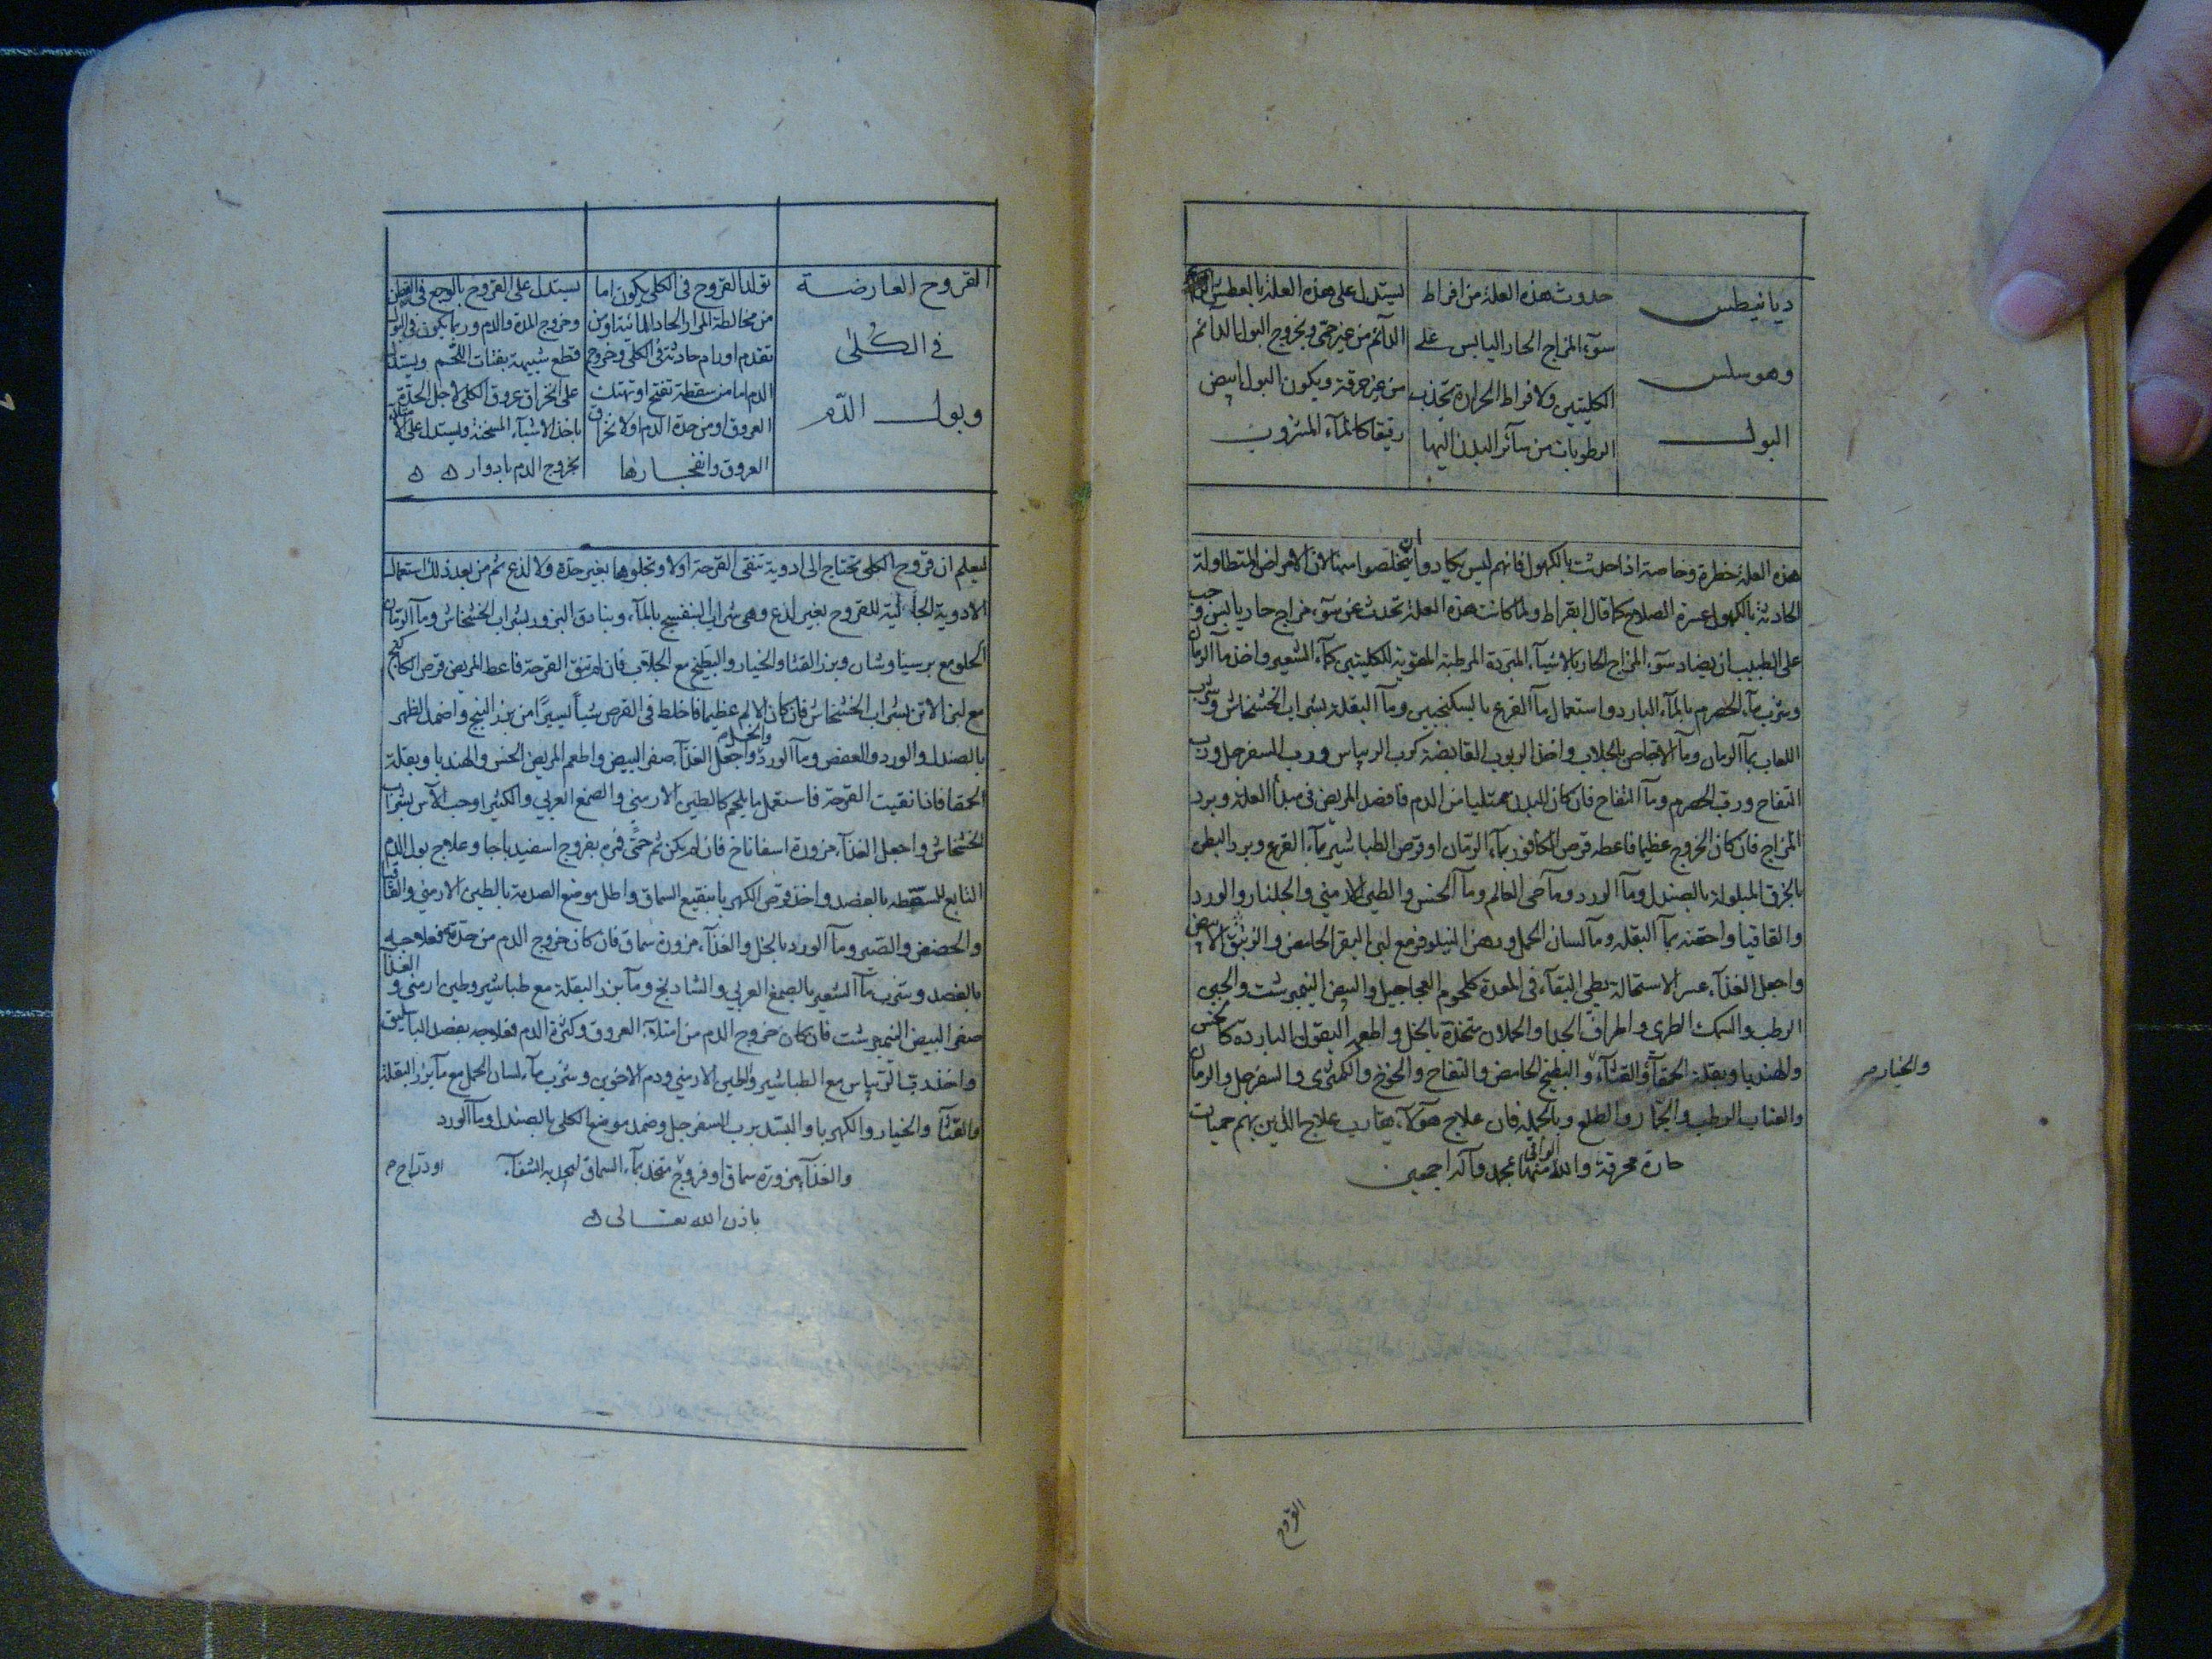 ديانيطس
وهو سلس
البول
حدوث هذه العلة من افراط
سوء المزاج الحار اليابس على
الكليتين ولافراط الحرارة تجذب
الرطوبات من سائر البدن اليها
يستدل على هذه العلة بالعطش
الدائم من غير حمى وبخروج البول الدائم
من غير حرقة ويكون البول ابيض
رقيقا كالماء المشروب
هذه العلة خطرة وخاصة اذا حدثت بالكهول فانهم ليس يكادوا ان يتخلصوا منها لان الامراض المتطاولة
الحادثة بالكهول عسرة الصلاح كما قال ابقراط ولما كانت هذه العلة تحدث عن سوء مزاج حار يابس وجب
على الطبيب ان يضاد سوء المزاج الحار بالاشياء المبردة المرطبة المقوية للكليتين كماء الشعير واخذ ماء الرمان
وشرب ماء الحصرم بالماء البارد واستعمال ماء القرع بالسكنجبين وماء البقلة بشراب الخشخاش وشرب
اللعاب بماء الرمان وماء الاجاص بالجلاب واخذ الربوب القابضة كرب الريباس ورب السفرجل ورب
التفاح ورب الحصرم وماء التفاح فان كان البدن ممتليا من الدم فافصد المريض فى مبدأ العلة وبرد
المزاج فان كان الخروج عظيما فاعطه قرص الكافور بماء الرمان او قرص الطباشير بماء القرع وبرد البطن
بالخرق المبلولة بالصندل وماء الورد وماء حى العالم وماء الخس والطين الارمني والجلنار والورد
والقاقيا واحقنه بماء البقله وماء لسان الحمل ودهن النيلوفر مع لبن البقر الحامض والزئبق الابيض
واجعل الغذاء عسر الاستحالة بطى البقاء فى المعدة كلحوم العجاجيل والبيض النيمبرشت والجبن
الرطب والسمك الطرى واطراف الجدا والحملان متخذة بالخل واطعمه البقول الباردة كالخس
والهندبا وبقلة الحمقاء والقثاء والبطيخ الحامض والتفاح والخوخ والكمثرى والسفرجل والرمان
والخيار
والعناب الرطب والجمار والطلع وبالجملة فان علاج هولاء يقارب علاج الذين بهم حميات
حارة محرقة والله الواقى منها بمحمد وآله اجمعين
القروح
القروح العارضة
فى الكلى
وبول الدم
تولد القروح فى الكلى يكون اما
من مخالطة المرار الحاد المائية او من
تقدم اورام حادثة فى الكلى وخروج
الدم اما من سقطة تفتح او تهتك
العروق او من حدة الدم او لانخراق
العروق وانفجارها
يستدل على القروح بالوجع فى القطن
وخروج المدة والدم وربما يكون فى البول
قطع شبيهة بفتات اللحم ويستدل
على انخراق عروق الكلى لاجل الحدة
باخذ الاشياء المسخنة ويستدل على الامتلاء
بخروج الدم بادوار ه ه
ليعلم ان قروح الكلى تحتاج الى ادوية تنقى القرحة اولا وتجلوها بغير حدة ولا لذع ثم من بعد ذلك استعمال
الادوية الجالية للقروح بغير لذع وهى شراب البنفسج بالماء وبنادق البزور بشراب الخشخاش وماء الرمان
الحلو مع برسياوشان وبزر القثا والخيار والبطيخ مع الجلاب فان لم تنق القرحة فاعط المريض قرص الكاكنج
مع لبن الاتن بشراب الخشخاش فان كان الالم عظيما فاخلط فى القرص شيأ يسيرا من بزر البنج واضمد الظهر
بالصندل والورد والعفص وماء الورد والخل واجعل الغذاء صفر البيض واطعم المريض الخس والهندبا وبقلة
الحمقا فاذا نقيت القرحة فاستعمل ما يلحم كالطين الارمني والصمغ العربي والكثيرا وحب الآس بشراب
الخشخاش واجعل الغذاء مزورة اسفاناخ فان لم يكن ثم حمى فمره بفروج اسفيدباجا وعلاج بول الدم
التابع للسقطه بالفصد واخذ قرص الكهربا بنقيع السماق واطل موضع الصدمة بالطين الارمني والقاقيا
والحضض والصبر وماء الورد بالخل والغذاء مزورة سماق فان كان خروج الدم من حدته فعلاجه
بالفصد وشرب ماء الشعير بالصمغ العربي والشادنج وماء بزر البقلة مع طباشير وطين ارمنى والغذا
صفر البيض النيمبرشت فان كان خروج الدم من امتلاء العروق وكثرة الدم فعلاجه بفصد الباسليق
واخذ رب الريباس مع الطباشير والطين الارمني ودم الاخوين وشرب ماء لسان الحمل مع ماء بزر البقلة
والقثاء والخيار والكهربا والبسد برب السفرجل وضمد موضع الكلى بالصندل وماء الورد
والغذاء مزورة سماق او فروج متخذ بماء السماق ليجد به الشفاء او دراج
باذن الله تعالى ه